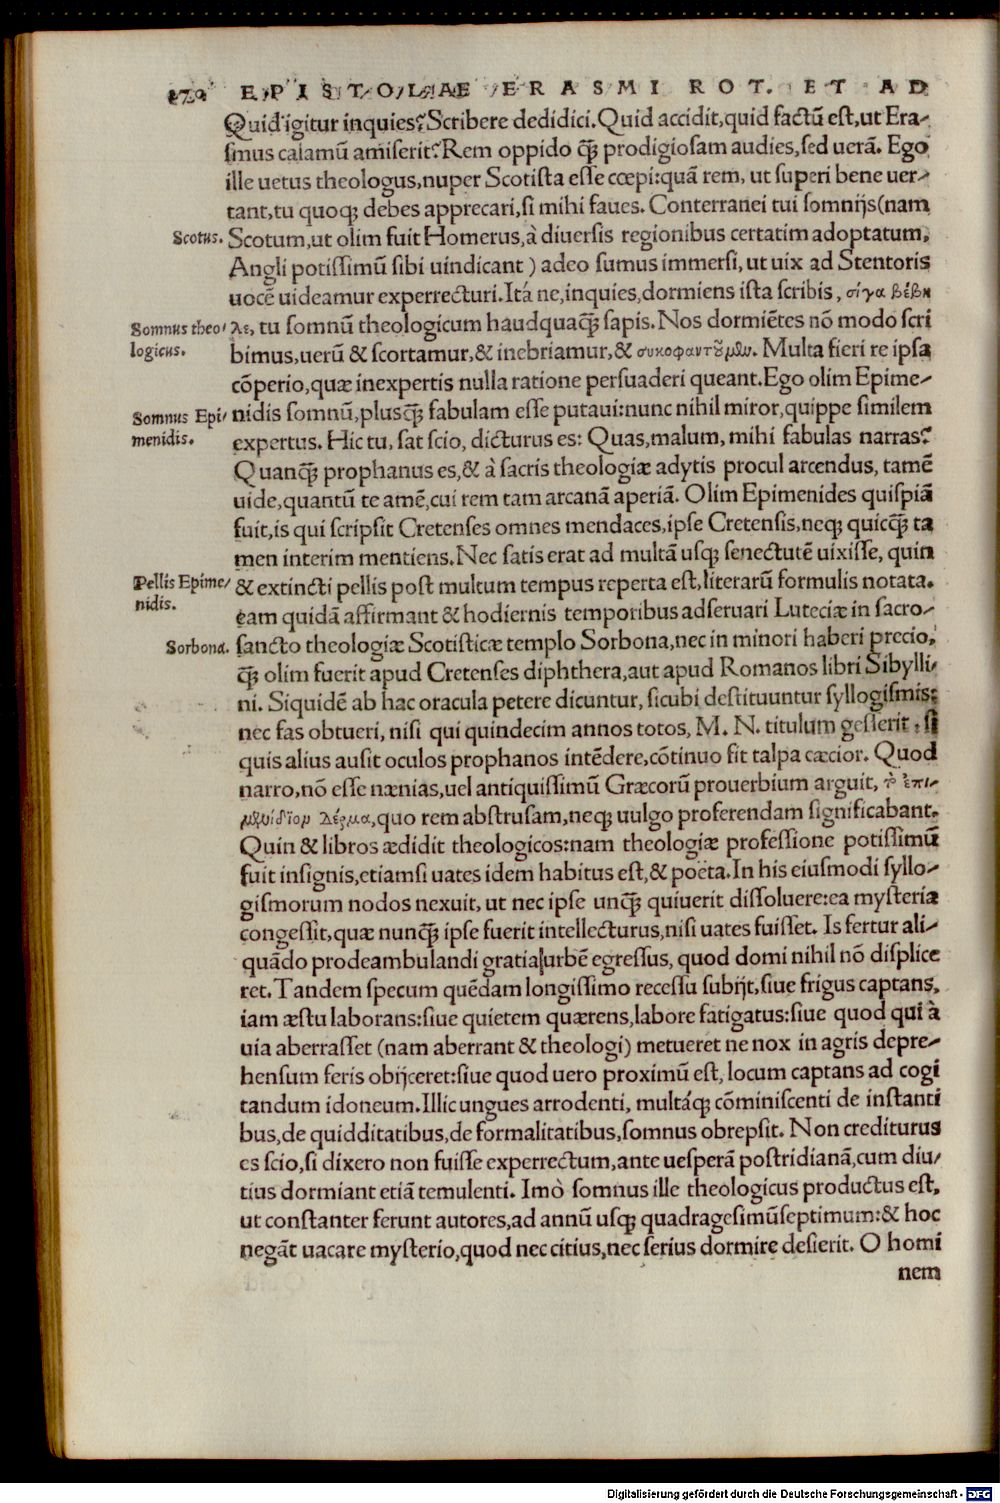 EPISTOLAE ERASMI ROT. ET AD
Quid igitur inquies? Scribere dedidici. Quid accidit, quid factũ est, ut Era-
smus calamũ amiserit? Rem oppido q̃ꝫ prodigiosam audies, sed uerã. Ego
ille uetus theologus, nuper Scotista esse cœpi: quã rem, ut superi bene uer-
tant, tu quoqꝫ debes apprecari, si mihi faues. Conterranei tui somnijs (nam
Scotus.
Scotum, ut olim fuit Homerus, à diuersis regionibus certatim adoptatum,
Angli potissimũ sibi uindicant) adeo sumus immersi, ut uix ad Stentoris
uocẽ uideamur experrecturi. Itá ne, inquies, dormiens ista scribis, σίγα βέβη
Somnus theo/
logicus.
λε, tu somnũ theologicum haudquaq̃ꝫ sapis. Nos dormiẽtes nõ modo scri
bimus, uerũ & scortamur, & inebriamur, & συκοφαντοῦμεν. Multa fieri re ipsa
cõperio, quæ inexpertis nulla ratione persuaderi queant. Ego olim Epime-
Somnus Epi/
menidis.
nidis somnũ, plusq̃ꝫ fabulam esse putaui: nunc nihil miror, quippe similem
expertus. Hic tu, sat scio, dicturus es: Quas, malum, mihi fabulas narras?
Quanq̃ꝫ prophanus es, & à sacris theologiæ adytis procul arcendus, tamẽ
uide, quantũ te amẽ, cui rem tam arcanã aperiã. Olim Epimenides quispiã
fuit, is qui scripsit Cretenses omnes mendaces, ipse Cretensis, neqꝫ quicq̃ꝫ ta
men interim mentiens. Nec satis erat ad multã usqꝫ senectutẽ uixisse, quin
Pellis Epime/
nidis.
& extincti pellis post multum tempus reperta est, literarũ formulis notata.
eam quidã affirmant & hodiernis temporibus adseruari Luteciæ in sacro-
Sorbona.
sancto theologiæ Scotisticæ templo Sorbona, nec in minori haberi precio,
q̃ꝫ olim fuerit apud Cretenses diphthera, aut apud Romanos libri Sibylli/
ni. Siquidẽ ab hac oracula petere dicuntur, sicubi destituuntur syllogismis:
nec fas obtueri, nisi qui quindecim annos totos, M. N. titulum gesserit. si
quis alius ausit oculos prophanos intẽdere, cõtinuo fit talpa cæcior. Quod
narro, nõ esse nænias, uel antiquissimũ Græcorũ prouerbium arguit, τὸ ἐπι-
μενίδιον δέρμα, quo rem abstrusam, neqꝫ uulgo proferendam significabant.
Quin & libros ædidit theologicos: nam theologiæ professione potissimũ
fuit insignis, etiamsi uates idem habitus est, & poëta. In his eiusmodi syllo-
gismorum nodos nexuit, ut nec ipse unq̃ꝫ quiuerit dissoluere: ea mysteria
congessit, quæ nunq̃ꝫ ipse fuerit intellecturus, nisi uates fuisset. Is fertur ali-
quãdo prodeambulandi gratia urbẽ egressus, quod domi nihil nõ displice
ret. Tandem specum quẽdam longissimo recessu subijt, siue frigus captans,
iam æstu laborans: siue quietem quærens, labore fatigatus: siue quod qui à
uia aberrasset (nam aberrant & theologi) metueret ne nox in agris depre-
hensum feris obijceret: siue quod uero proximũ est, locum captans ad cogi
tandum idoneum. Illic ungues arrodenti, multáqꝫ cõminiscenti de instanti
bus, de quidditatibus, de formalitatibus, somnus obrepsit. Non crediturus
es scio, si dixero non fuisse experrectum, ante uesperã postridianã, cum diu/
tius dormiant etiã temulenti. Imò somnus ille theologicus productus est,
ut constanter ferunt autores, ad annũ usqꝫ quadragesimũseptimum: & hoc
negãt uacare mysterio, quod nec citius, nec serius dormire desierit. O homi
nem
Digitalisierung gefördert durch die Deutsche Forschungsgemeinschaft - DFG